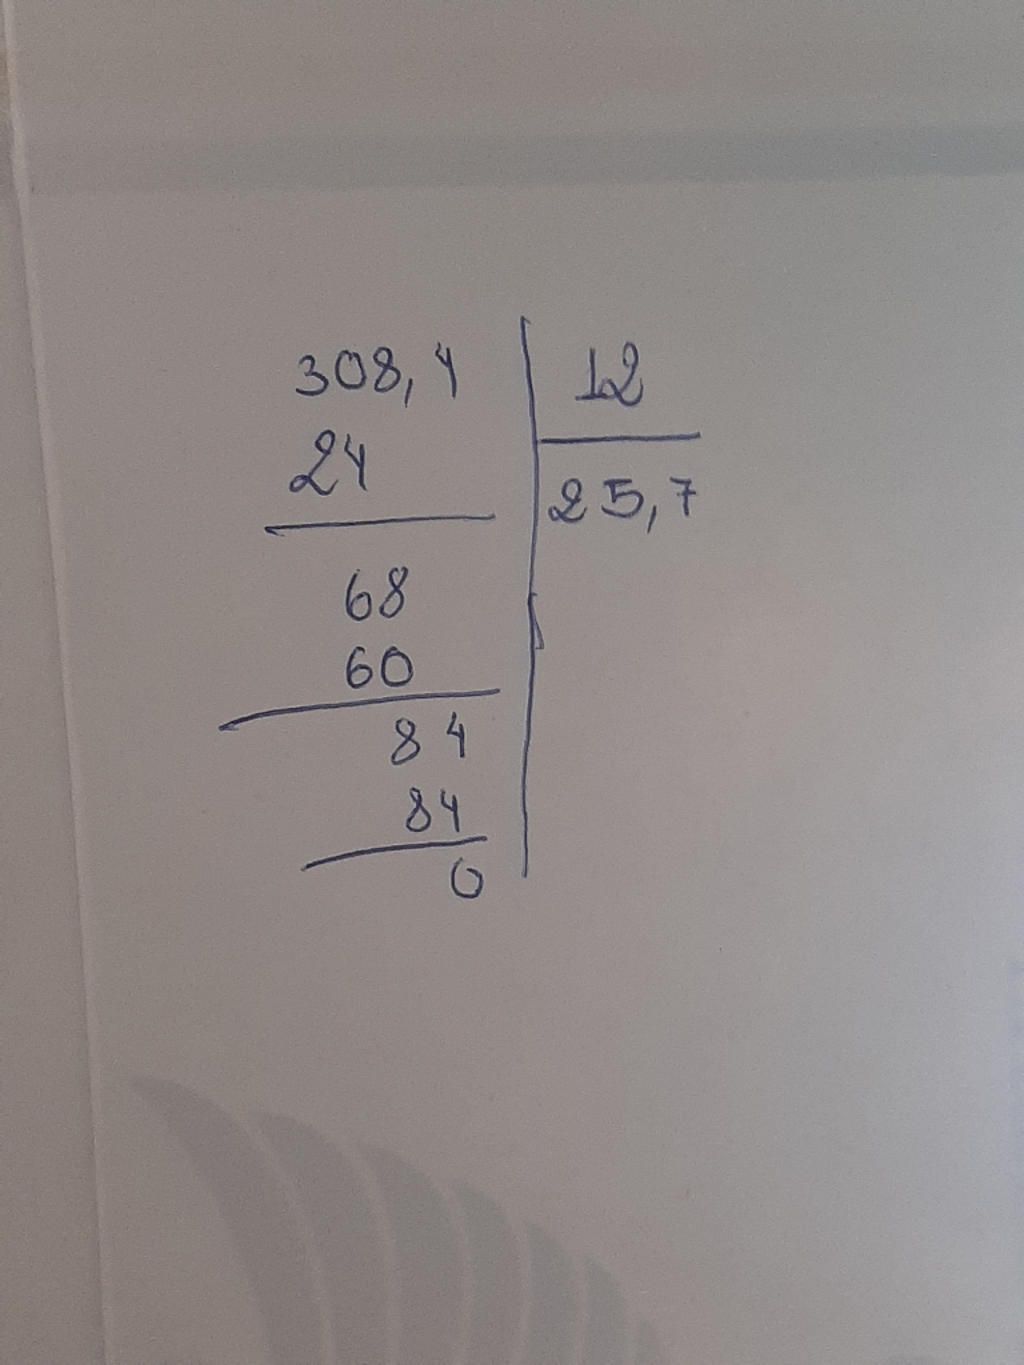 308,4 12
24 25,7
68
60
84
84
0